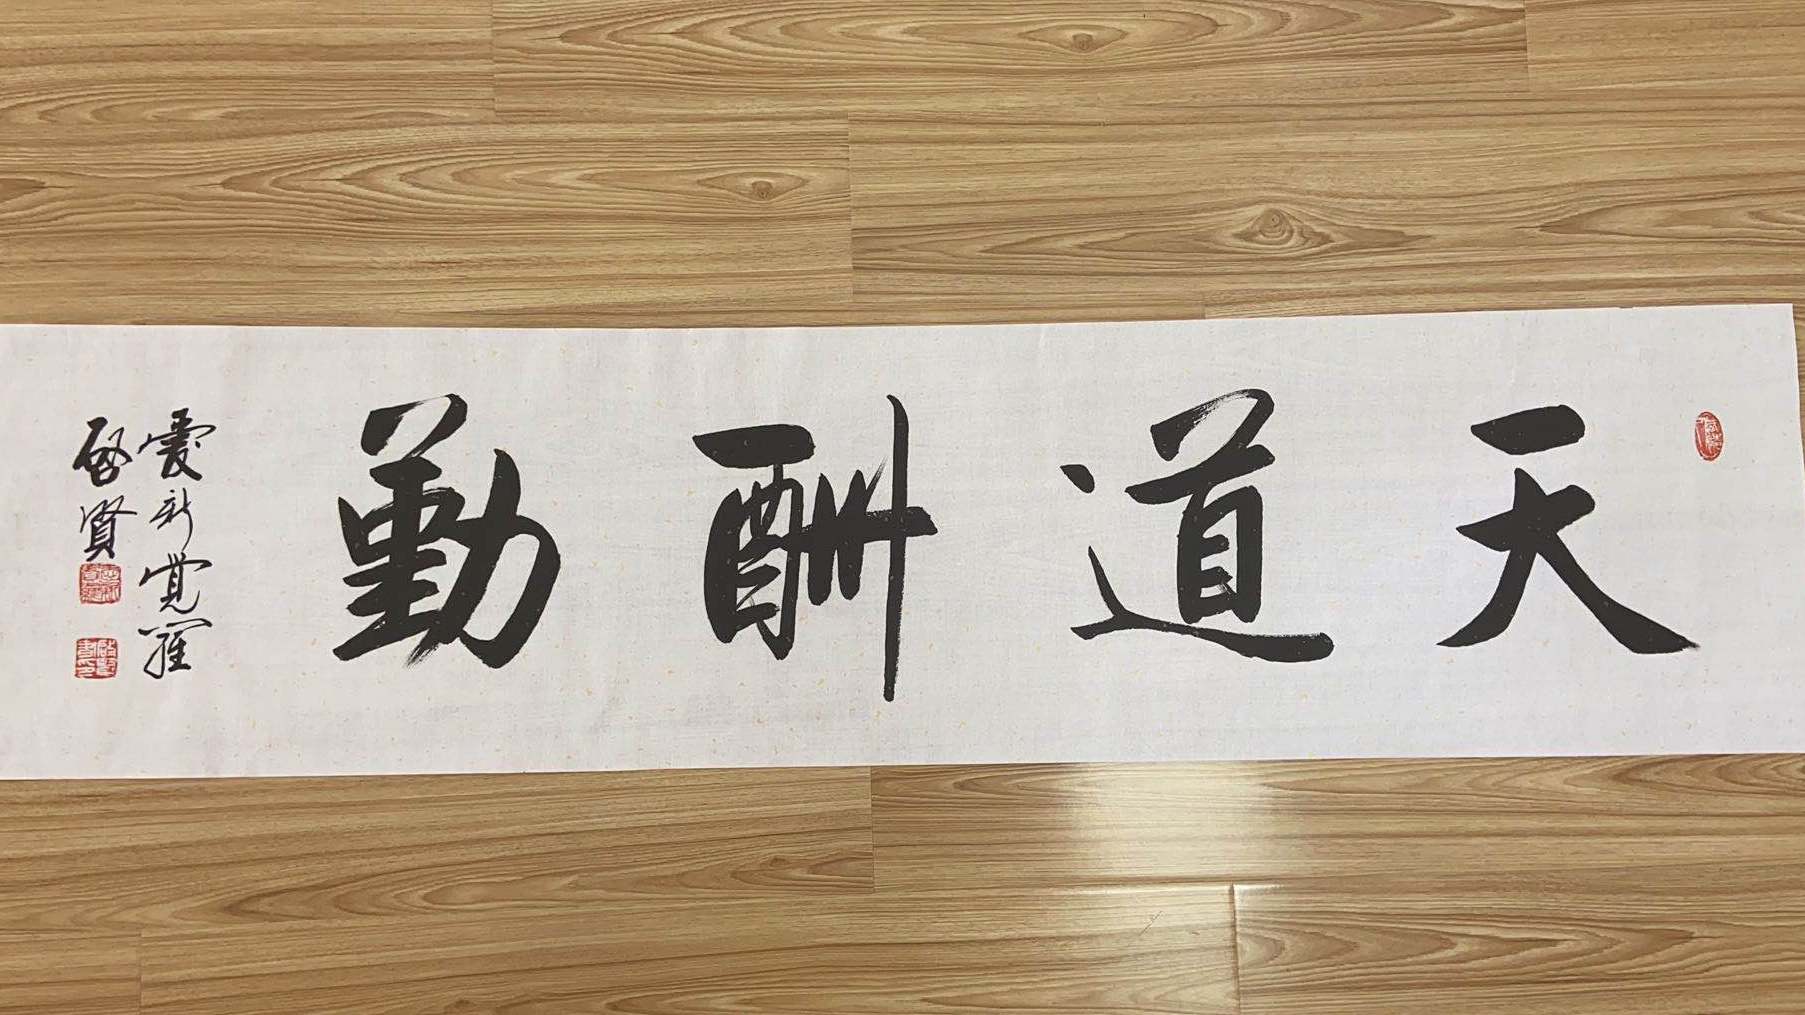 天道酬勤
愛新覚羅
啓賢